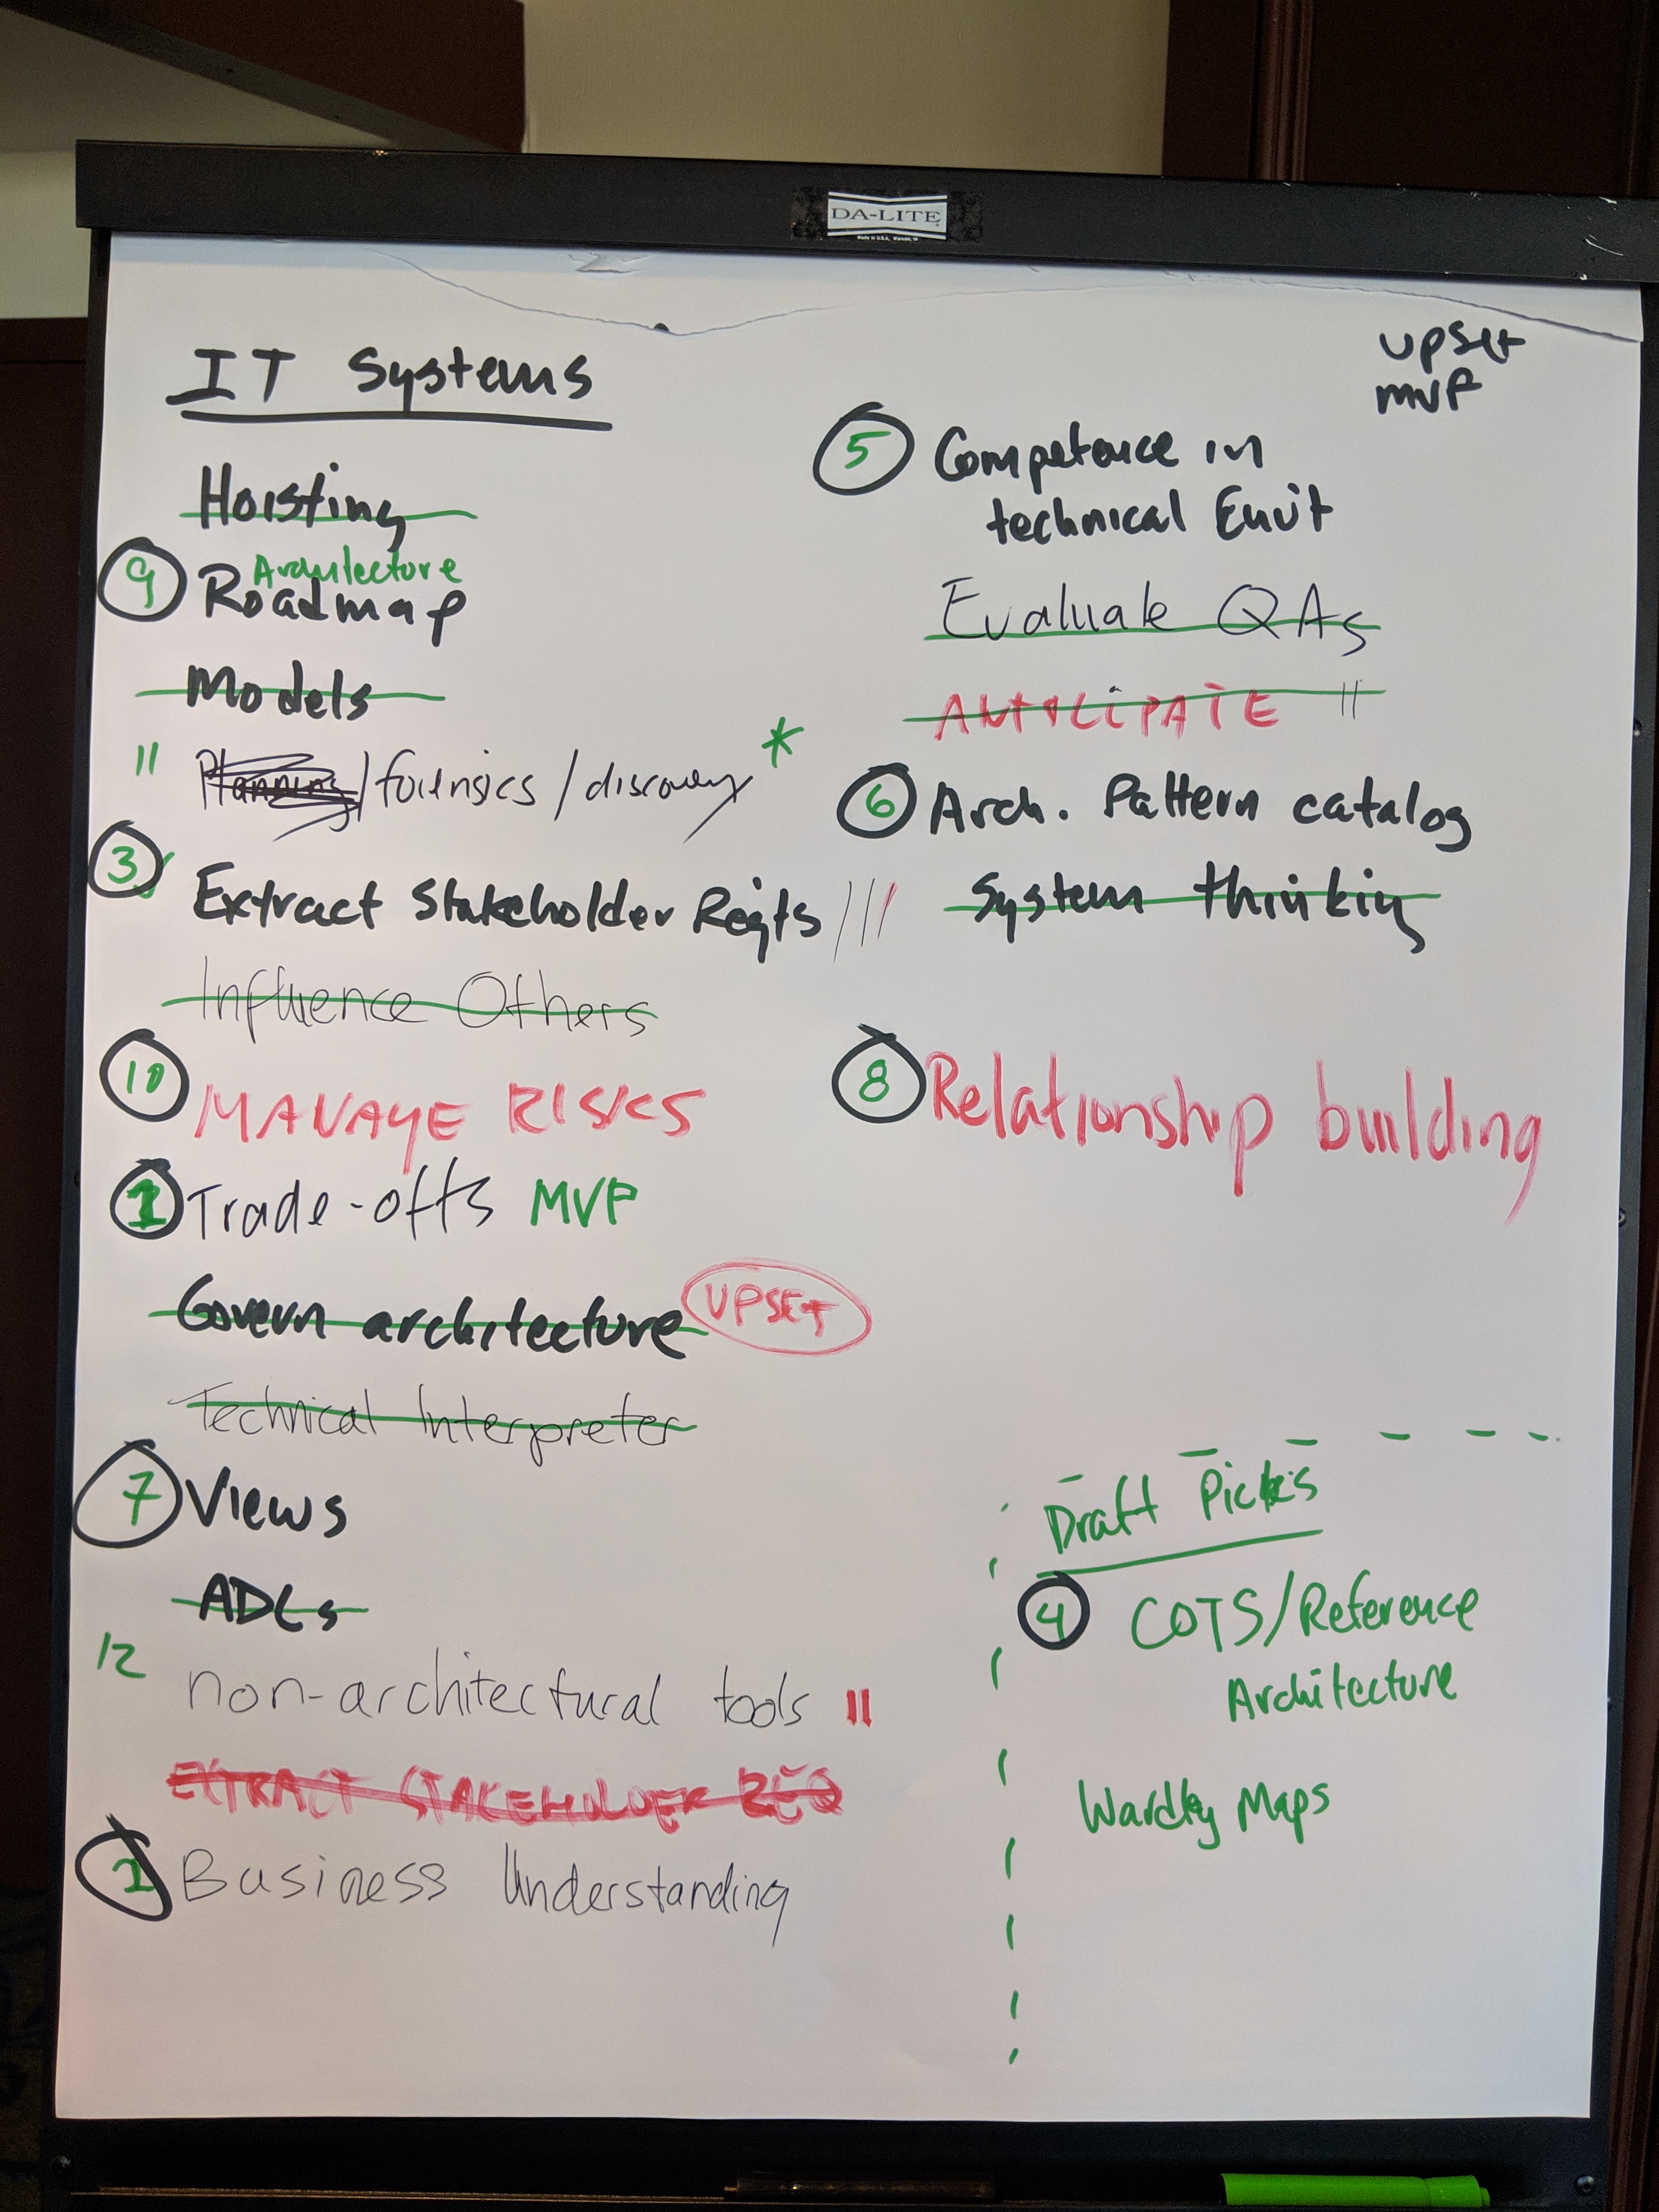 DA-LITE
Made in U.S.A. Warsaw, IN
IT Systems
Hoisting
9 Architecture
Roadmap
Models
11 Planning/forensics/discovery *
3 Extract Stakeholder Reqts |||
Influence Others
10 MANAGE RISKS
1 Trade-offs MVP
Govern architecture UPSET
Technical Interpreter
7 Views
ADLs
12 non-architectural tools II
EXTRACT STAKEHOLDER REQ
Business Understanding
upset
mvp
5 Competence in
technical Envit
Evaluate QAs
ANTICIPATE ||
6 Arch. Pattern catalog
System thinking
8 Relationship building
Draft Picks
4 COTS/Reference
Architecture
Wardley Maps